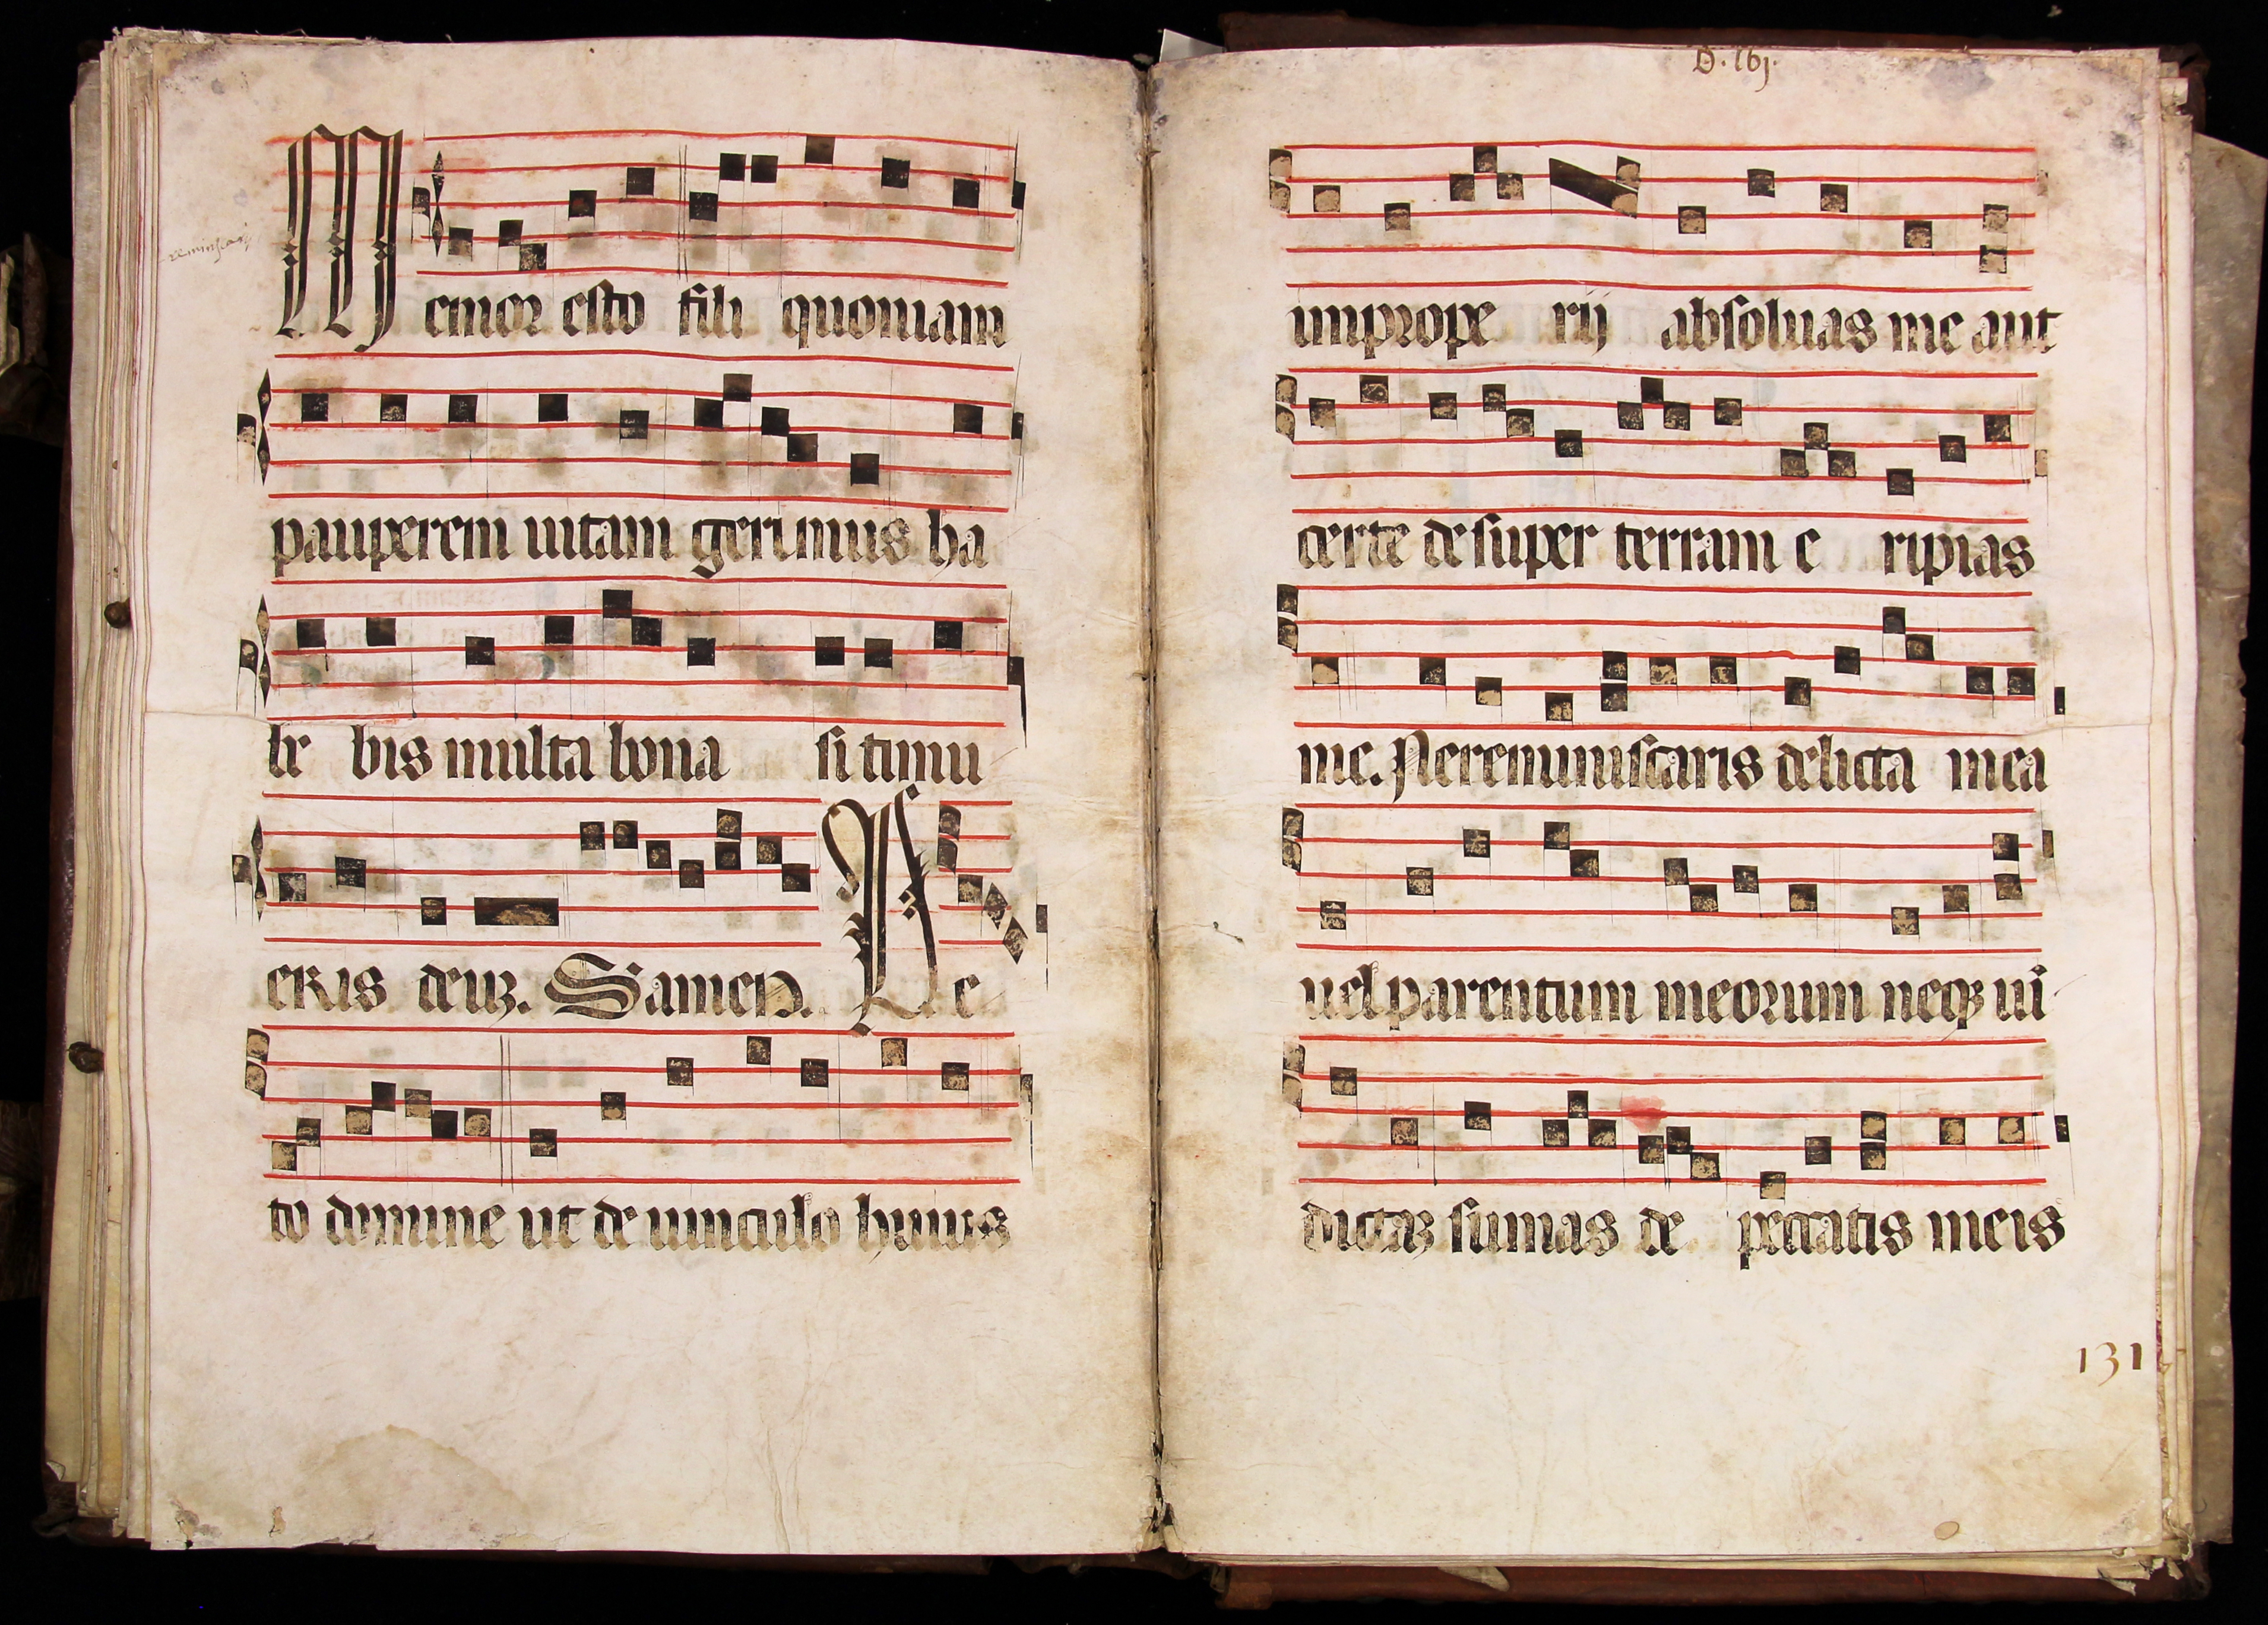 Memor esto fili quoniam
pauperem uitam gerimus ha
be bis multa bona si timu
eris deuʒ. Seuouaen. Pe
to domine ut de uinculo huius
D. 161.
improperij absoluas me aut
certe desuper terram e ripias
me. Ne reminiscaris delicta mea
uel parentum meorum neqʒ ui
dictaʒ sumas de peccatis meis
131